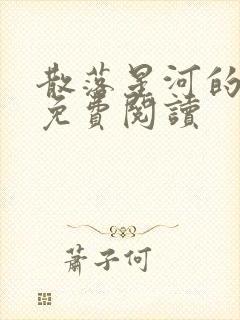 散落星河的
免費閱讀
蕭子何